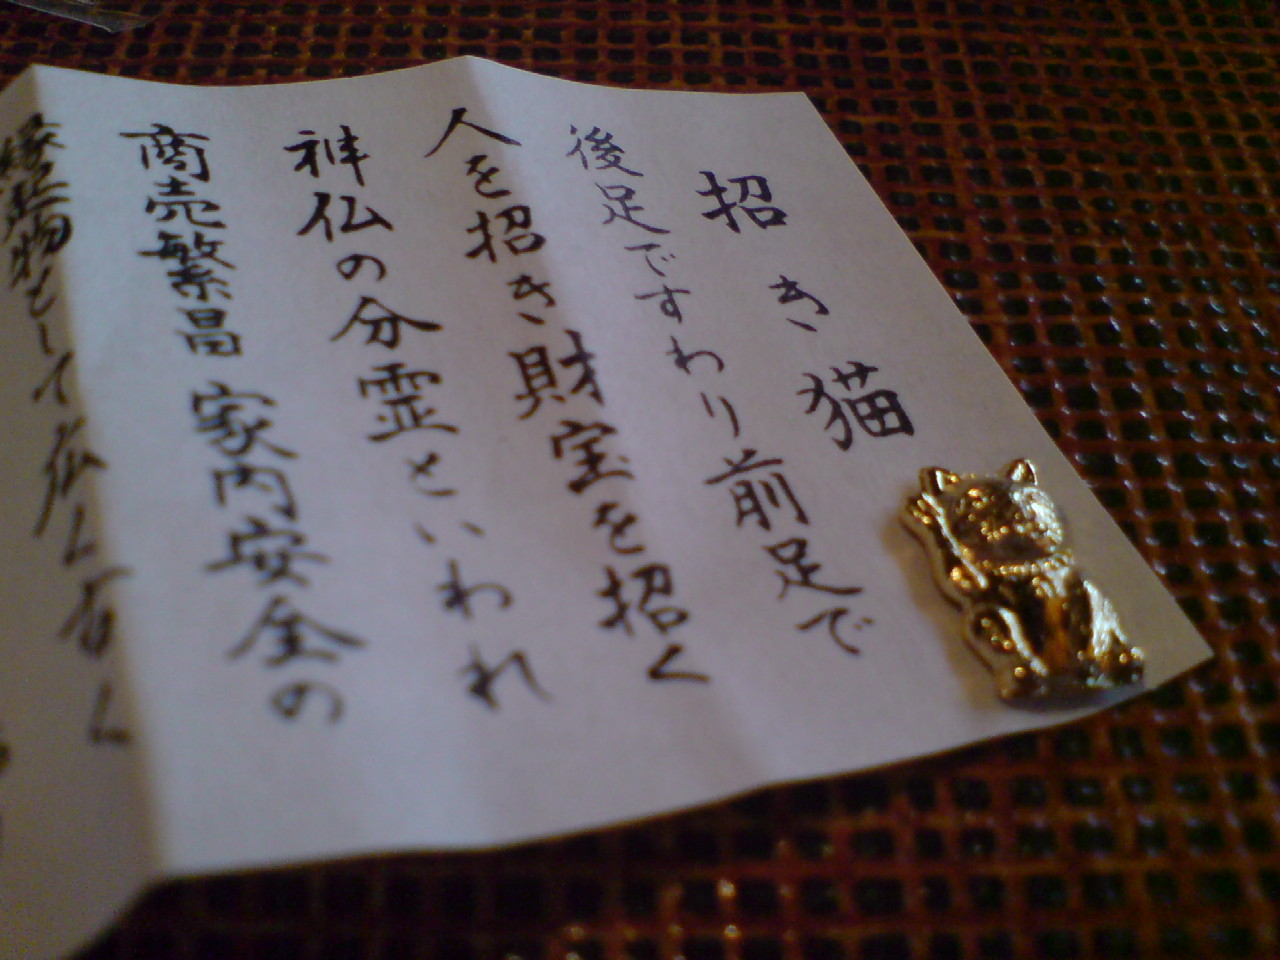 招き猫
後足ですわり前足で
人を招き財宝を招く
神仏の分霊といわれ
商売繁昌家内安全の
縁起物として広く有